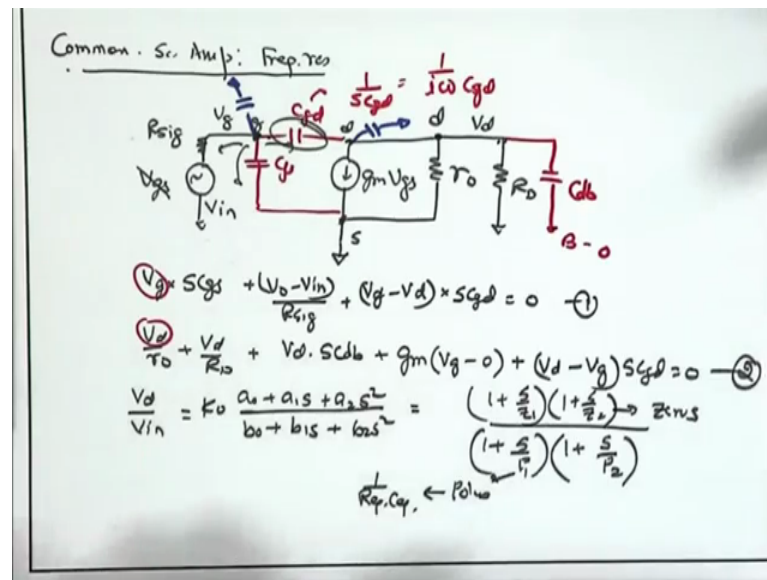 Common. Sc. Amp: Freq. res
1/sCgd = 1/jω Cgd
Vg g Cgd d d Vd
Rsig
Vgs Cgs gm Vgs ro RD Cdb
Vin
S B - 0
Vg × SCgs + (Vo - Vin)/Rsig + (Vg - Vd) × SCgd = 0 -①
Vd/ro + Vd/RD + Vd. SCdb + gm(Vg - 0) + (Vd - Vg) SCgd = 0 -②
Vd/Vin = Ko (a0 + a1s + a2s²)/(b0 + b1s + b2s²) = (1 + S/Z1)(1 + S/Z2)/(1 + S/P1)(1 + S/P2) → Zeros
1/Req. Ceq. ← Poles